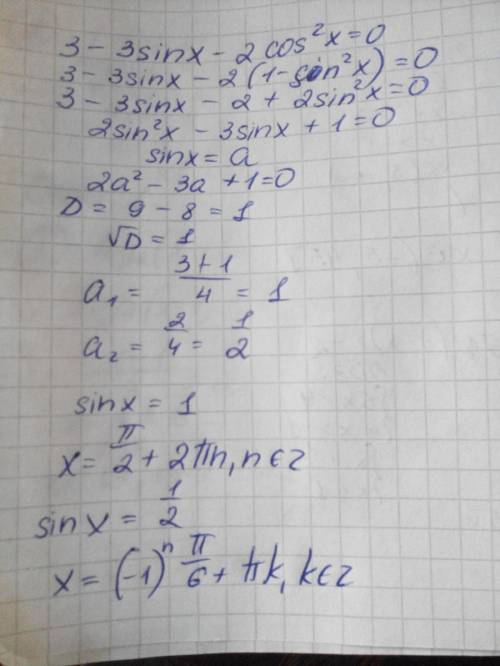 3 - 3sinx - 2cos²x = 0
3 - 3sinx - 2(1 - sin²x) = 0
3 - 3sinx - 2 + 2sin²x = 0
2sin²x - 3sinx + 1 = 0
sinx = a
2a² - 3a + 1 = 0
D = 9 - 8 = 1
√D = 1
a₁ = (3+1)/4 = 1
a₂ = 2/4 = 1/2
sinx = 1
x = π/2 + 2πn, n∈z
sinx = 1/2
x = (-1)ⁿ π/6 + πk, k∈z